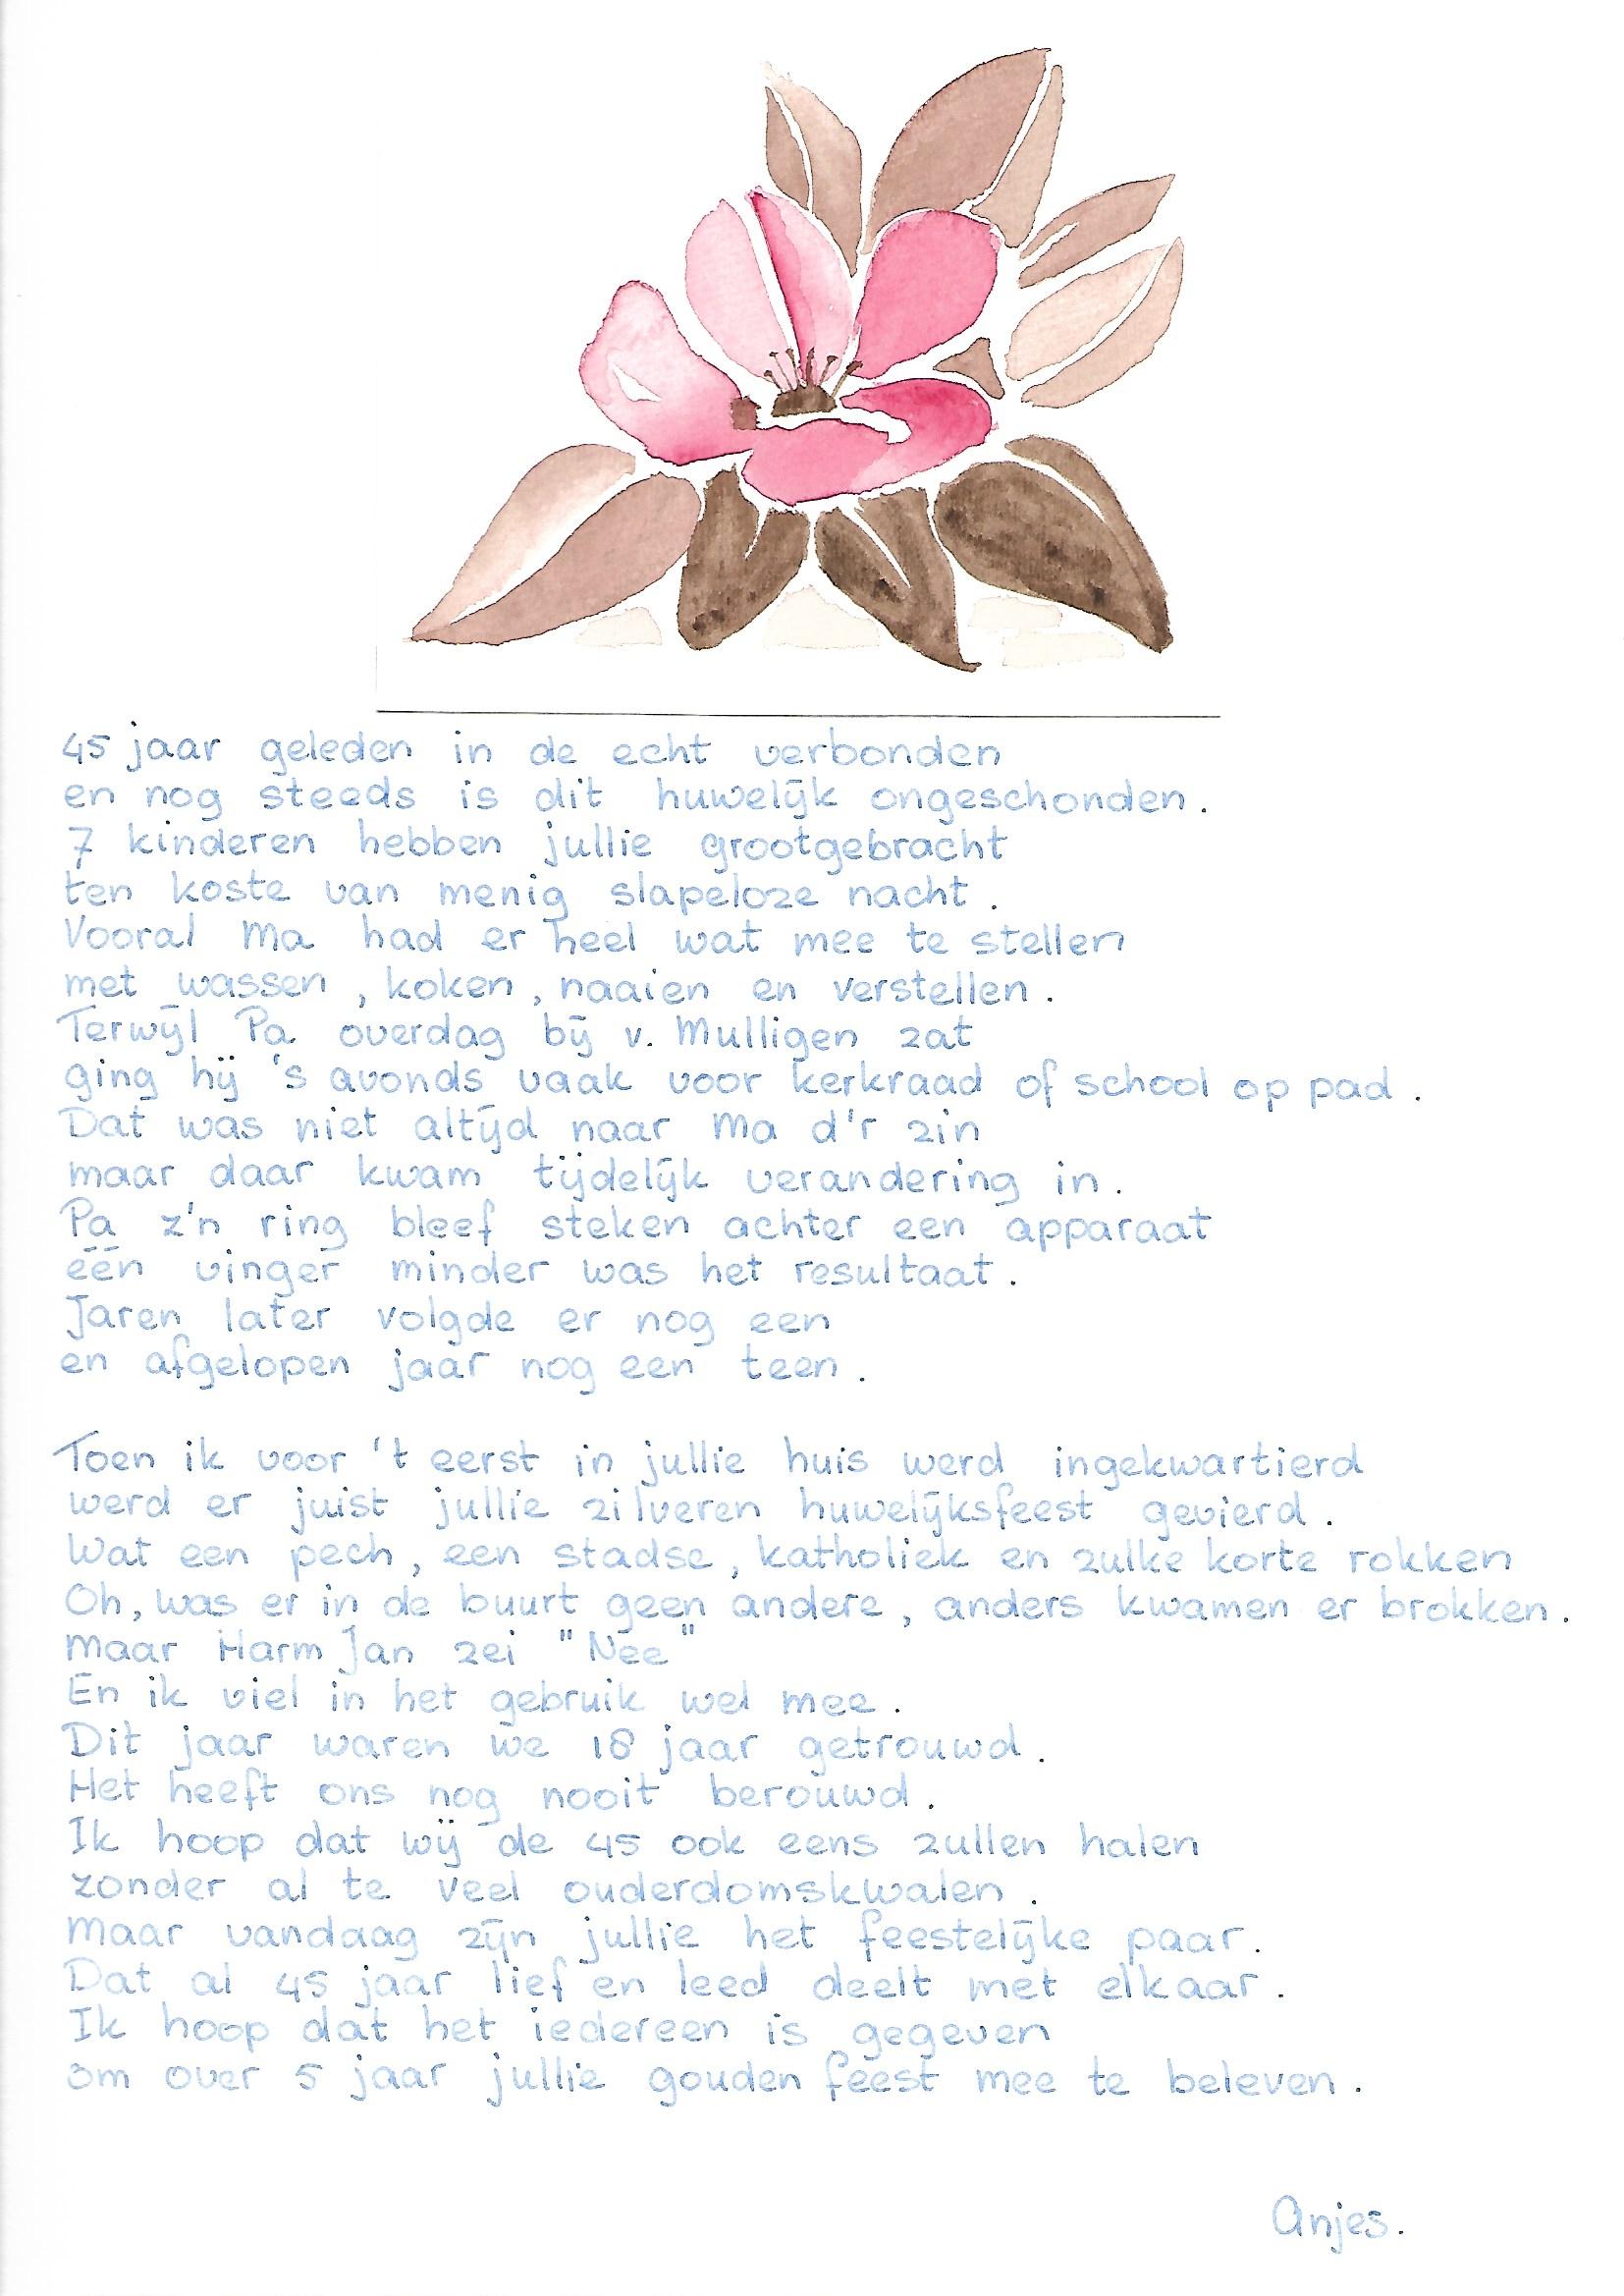 45 jaar geleden in de echt verbonden
en nog steeds is dit huwelijk ongeschonden.
7 kinderen hebben jullie grootgebracht
ten koste van menig slapeloze nacht.
Vooral Ma had er heel wat mee te stellen
met wassen, koken, naaien en verstellen.
Terwijl Pa overdag bij v. Mulligen zat
ging hij 's avonds vaak voor kerkraad of school op pad.
Dat was niet altijd naar Ma d'r zin
maar daar kwam tijdelijk verandering in.
Pa z'n ring bleef steken achter een apparaat
één vinger minder was het resultaat.
Jaren later volgde er nog een
en afgelopen jaar nog een teen.
Toen ik voor 't eerst in jullie huis werd ingekwartierd
werd er juist jullie zilveren huwelijksfeest gevierd.
Wat een pech, een stadse, katholiek en zulke korte rokken
Oh, was er in de buurt geen andere, anders kwamen er brokken.
Maar Harm Jan zei "Nee"
En ik viel in het gebruik wel mee.
Dit jaar waren we 18 jaar getrouwd.
Het heeft ons nog nooit berouwd.
Ik hoop dat wij de 45 ook eens zullen halen
zonder al te veel ouderdomskwalen.
Maar vandaag zijn jullie het feestelijke paar.
Dat al 45 jaar lief en leed deelt met elkaar.
Ik hoop dat het iedereen is gegeven
om over 5 jaar jullie gouden feest mee te beleven.
Anjes.